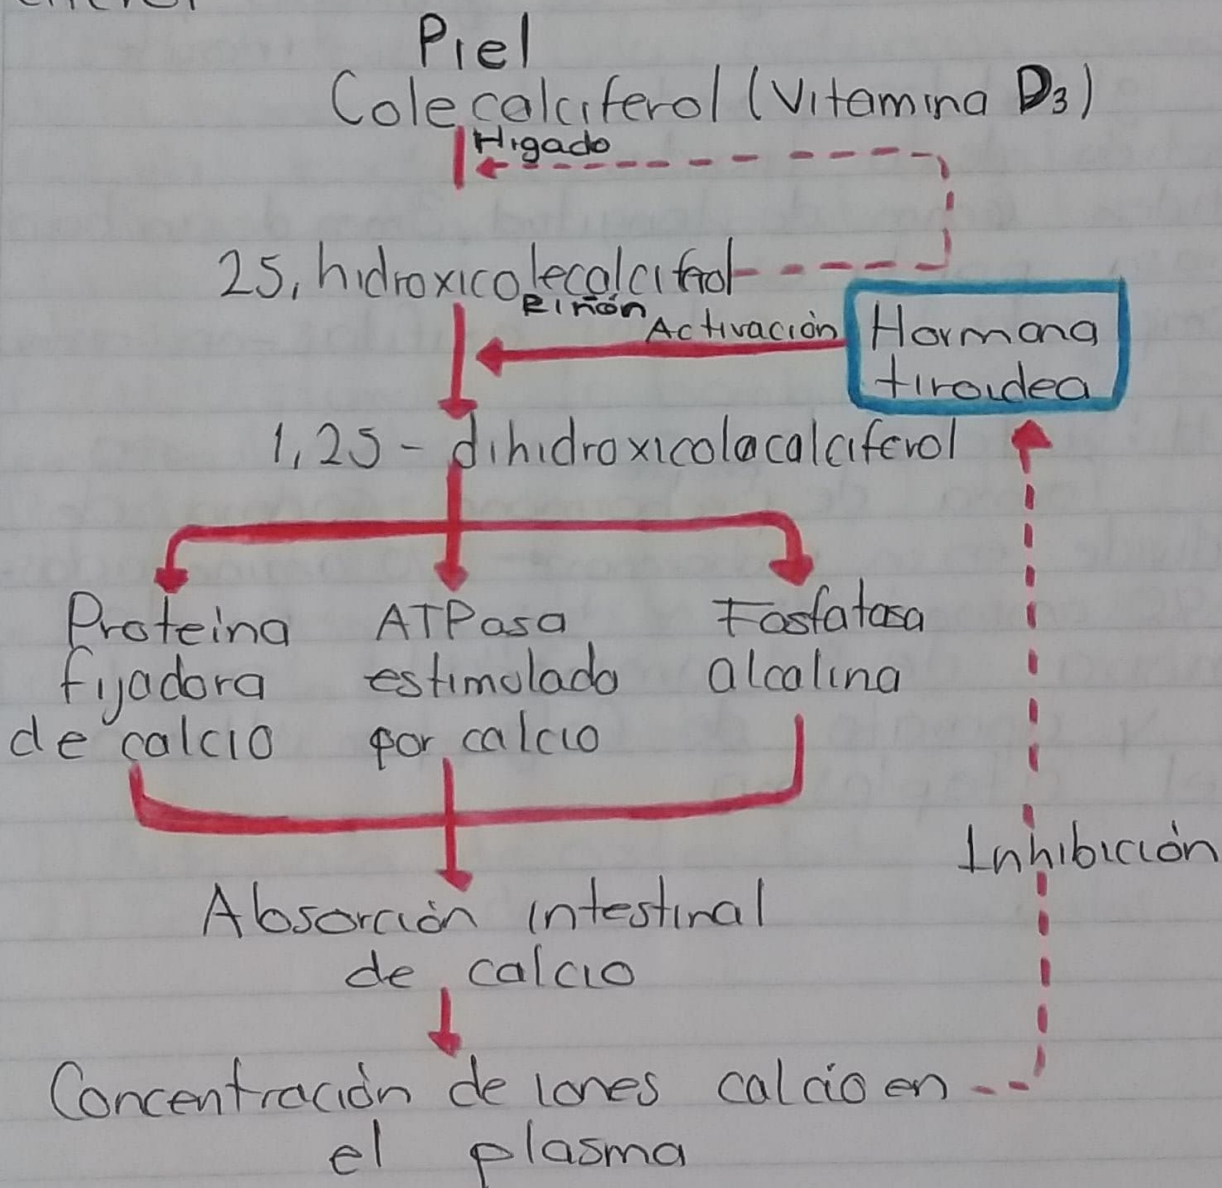 Piel
Colecalciferol (Vitamina D3)
Higado
25, hidroxicolecalcifrol
Riñón
Activación
Hormona
tiroidea
1,25 - dihidroxicolacalciferol
Proteina
fijadora
de calcio
ATPasa
estimulado
por calcio
Fosfatasa
alcalina
Inhibición
Absorción intestinal
de calcio
Concentración de iones calcio en
el plasma